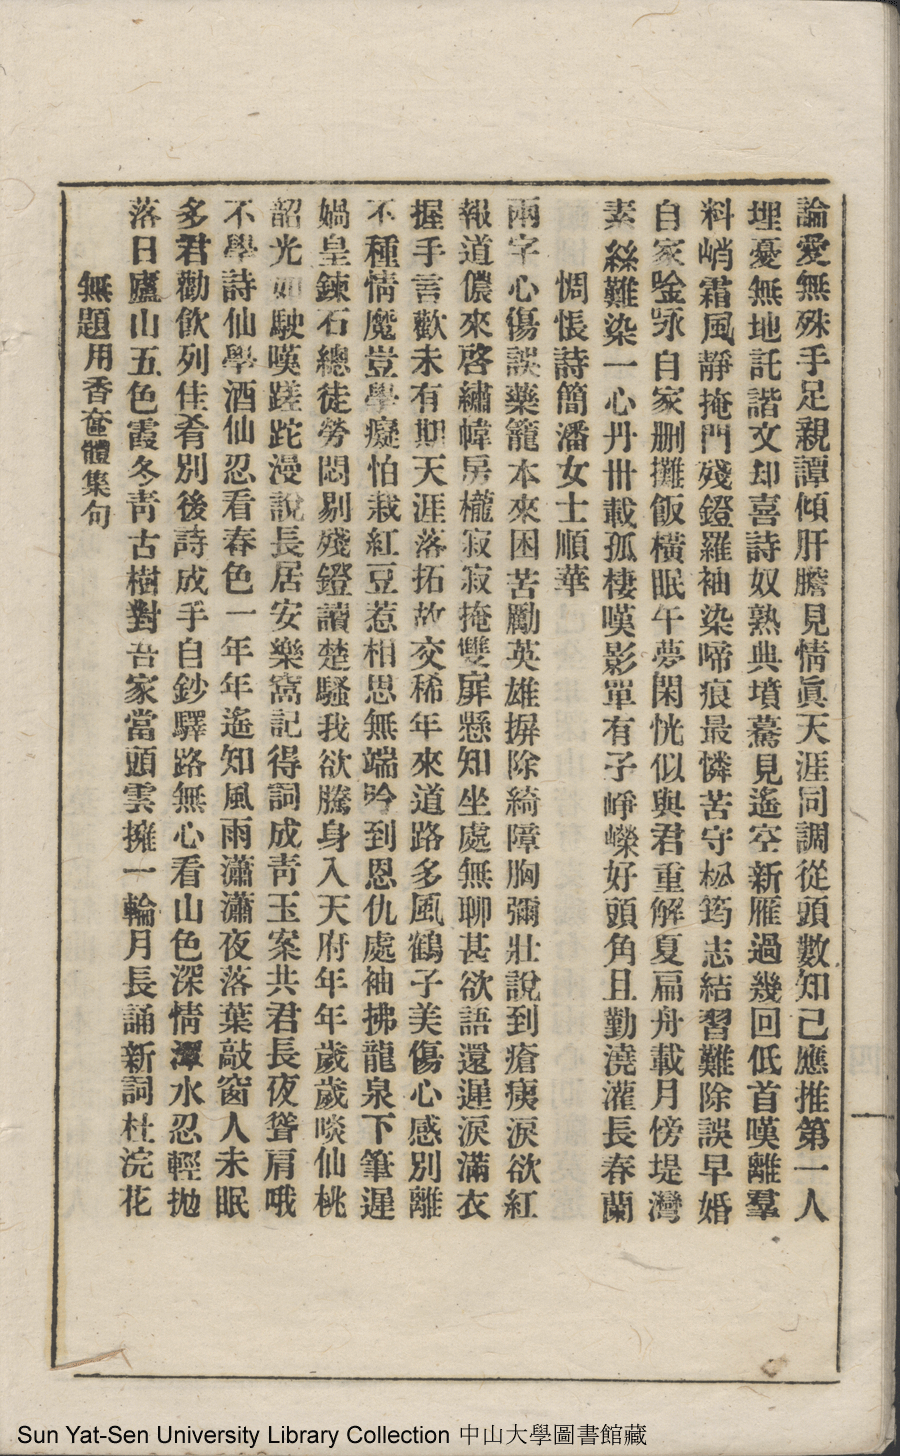 論愛無殊手足親譚傾肝膽見情眞天涯同調從頭數知己應推第一人
埋憂無地託諧文却喜詩奴熟典墳驀見遙空新雁過幾回低首嘆離羣
料峭霜風靜掩門殘鐙羅袖染啼痕最憐苦守松筠志結習難除誤早婚
自家唫咏自家删攤飯橫眠午夢閑恍似與君重解夏扁舟載月傍堤灣
素絲難染一心丹卅載孤棲嘆影單有子崢嶸好頭角且勤澆灌長春蘭
惆悵詩簡潘女士順華
兩字心傷誤藥籠本來困苦勵英雄摒除綺障胸彌壯說到瘡痍淚欲紅
報道儂來啓繡幃房櫳寂寂掩雙扉懸知坐處無聊甚欲語還遲淚滿衣
握手言歡未有期天涯落拓故交稀年來道路多風鶴子美傷心感別離
不種情魔豈學癡怕栽紅豆惹相思無端吟到恩仇處袖拂龍泉下筆遲
媧皇鍊石總徒勞悶剔殘鐙讀楚騷我欲騰身入天府年年歲歲啖仙桃
韶光如駛嘆蹉跎漫說長居安樂窩記得詞成靑玉案共君長夜聳肩哦
不學詩仙學酒仙忍看春色一年年遙知風雨瀟瀟夜落葉敲窗人未眠
多君勸飲列佳肴別後詩成手自鈔驛路無心看山色深情潭水忍輕拋
落日廬山五色霞冬靑古樹對吾家當頭雲擁一輪月長誦新詞杜浣花
無題用香奩體集句
Sun Yat-Sen University Library Collection 中山大學圖書館藏